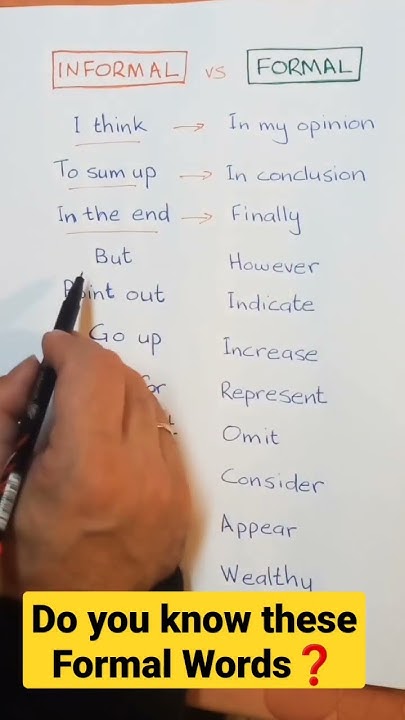 INFORMAL vs FORMAL
I think → In my opinion
To sum up → In conclusion
In the end → Finally
But However
Point out Indicate
Go up Increase
for Represent
Omit
Consider
Appear
Wealthy
Do you know these
Formal Words❓